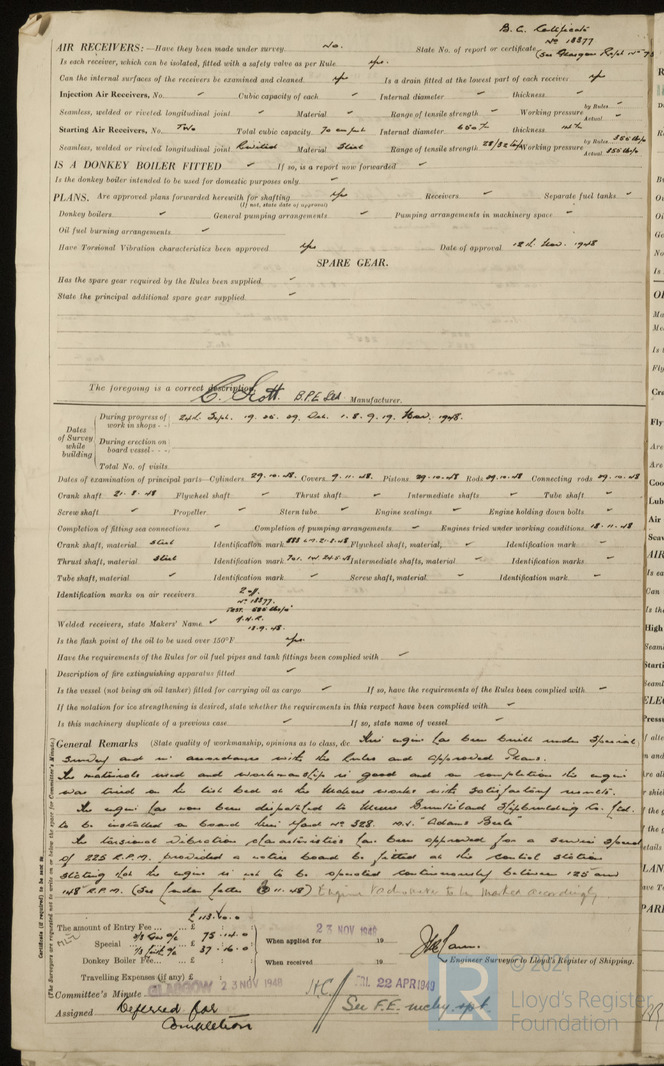 B.C. Certificate
No 18877
AIR RECEIVERS:—Have they been made under survey No. State No. of report or certificate (See Glasgow Rept No 73
Is each receiver, which can be isolated, fitted with a safety valve as per Rule yes.
Can the internal surfaces of the receivers be examined and cleaned yes Is a drain fitted at the lowest part of each receiver yes
Injection Air Receivers, No. ✓ Cubic capacity of each ✓ Internal diameter ✓ thickness ✓
Seamless, welded or riveted longitudinal joint ✓ Material ✓ Range of tensile strength ✓ Working pressure by Rules ✓ Actual ✓
Starting Air Receivers, No. Two Total cubic capacity 70 Internal diameter thickness
Seamless, welded or riveted longitudinal joint Riveted Material Steel Range of tensile strength 28/32 Working pressure by Rules Actual
IS A DONKEY BOILER FITTED ✓ If so, is a report now forwarded ✓
Is the donkey boiler intended to be used for domestic purposes only ✓
PLANS. Are approved plans forwarded herewith for shafting yes Receivers ✓ Separate fuel tanks ✓
(If not, state date of approval)
Donkey boilers ✓ General pumping arrangements ✓ Pumping arrangements in machinery space ✓
Oil fuel burning arrangements ✓
Have Torsional Vibration characteristics been approved yes Date of approval 12th Nov. 1948
SPARE GEAR.
Has the spare gear required by the Rules been supplied ✓
State the principal additional spare gear supplied ✓
The foregoing is a correct description,
C. Scott B.P.E. Ltd Manufacturer.
Dates of Survey while building
During progress of work in shops - - 24th Sept. 19. 26. 29. Oct. 1. 8. 9. 19 Nov. 1948.
During erection on board vessel - - -
Total No. of visits
Dates of examination of principal parts—Cylinders 29.10.48 Covers 9.11.48. Pistons 29.10.48 Rods 29.10.48 Connecting rods 29.10.48
Crank shaft 21.8.48 Flywheel shaft ✓ Thrust shaft ✓ Intermediate shafts ✓ Tube shaft ✓
Screw shaft ✓ Propeller ✓ Stern tube ✓ Engine seatings ✓ Engine holding down bolts ✓
Completion of fitting sea connections ✓ Completion of pumping arrangements ✓ Engines tried under working conditions 18.11.48
Crank shaft, material Steel Identification mark Flywheel shaft, material, ✓ Identification mark ✓
Thrust shaft, material Steel Identification mark Intermediate shafts, material ✓ Identification marks ✓
Tube shaft, material ✓ Identification mark ✓ Screw shaft, material ✓ Identification mark ✓
Identification marks on air receivers 2 off
No 18877.
Test
Welded receivers, state Makers' Name ✓
Is the flash point of the oil to be used over 150°F. yes.
Have the requirements of the Rules for oil fuel pipes and tank fittings been complied with ✓
Description of fire extinguishing apparatus fitted ✓
Is the vessel (not being an oil tanker) fitted for carrying oil as cargo ✓ If so, have the requirements of the Rules been complied with ✓
If the notation for ice strengthening is desired, state whether the requirements in this respect have been complied with ✓
Is this machinery duplicate of a previous case ✓ If so, state name of vessel ✓
General Remarks (State quality of workmanship, opinions as to class, &c. This engine has been built under Special
Survey and in accordance with the Rules and approved Plans.
The materials used and workmanship is good and on completion the engine
was tried on the test bed at the Makers works with satisfactory results.
The engine has now been dispatched to Messrs Burntisland Shipbuilding Co. Ltd.
to be installed on board their Yard No 328. M.V. "Adams Beck"
The torsional vibration characteristics have been approved for a service speed
of 225 R.P.M. provided a notice board be fitted at the control station
stating that the engine is not to be operated continuously between 125 and
148 R.P.M. (See London letter 11.48) Engine Tachometer to be marked accordingly
(The Surveyors are requested not to write on or below the space for Committee's Minute.)
Certificate (if required) to be sent to
£113.10.0
The amount of Entry Fee ... £
Special ... £ 75.14.0
37.16.0
Donkey Boiler Fee ... £
Travelling Expenses (if any) £
When applied for 23 NOV 1948 19
When received 19
Engineer Surveyor to Lloyd's Register of Shipping.
Committee's Minute GLASGOW 23 NOV 1948
FRI. 22 APR 1949
Assigned Deferred for
Completion
See F.E. mchy rpt
© 2021
Lloyd's Register
Foundation